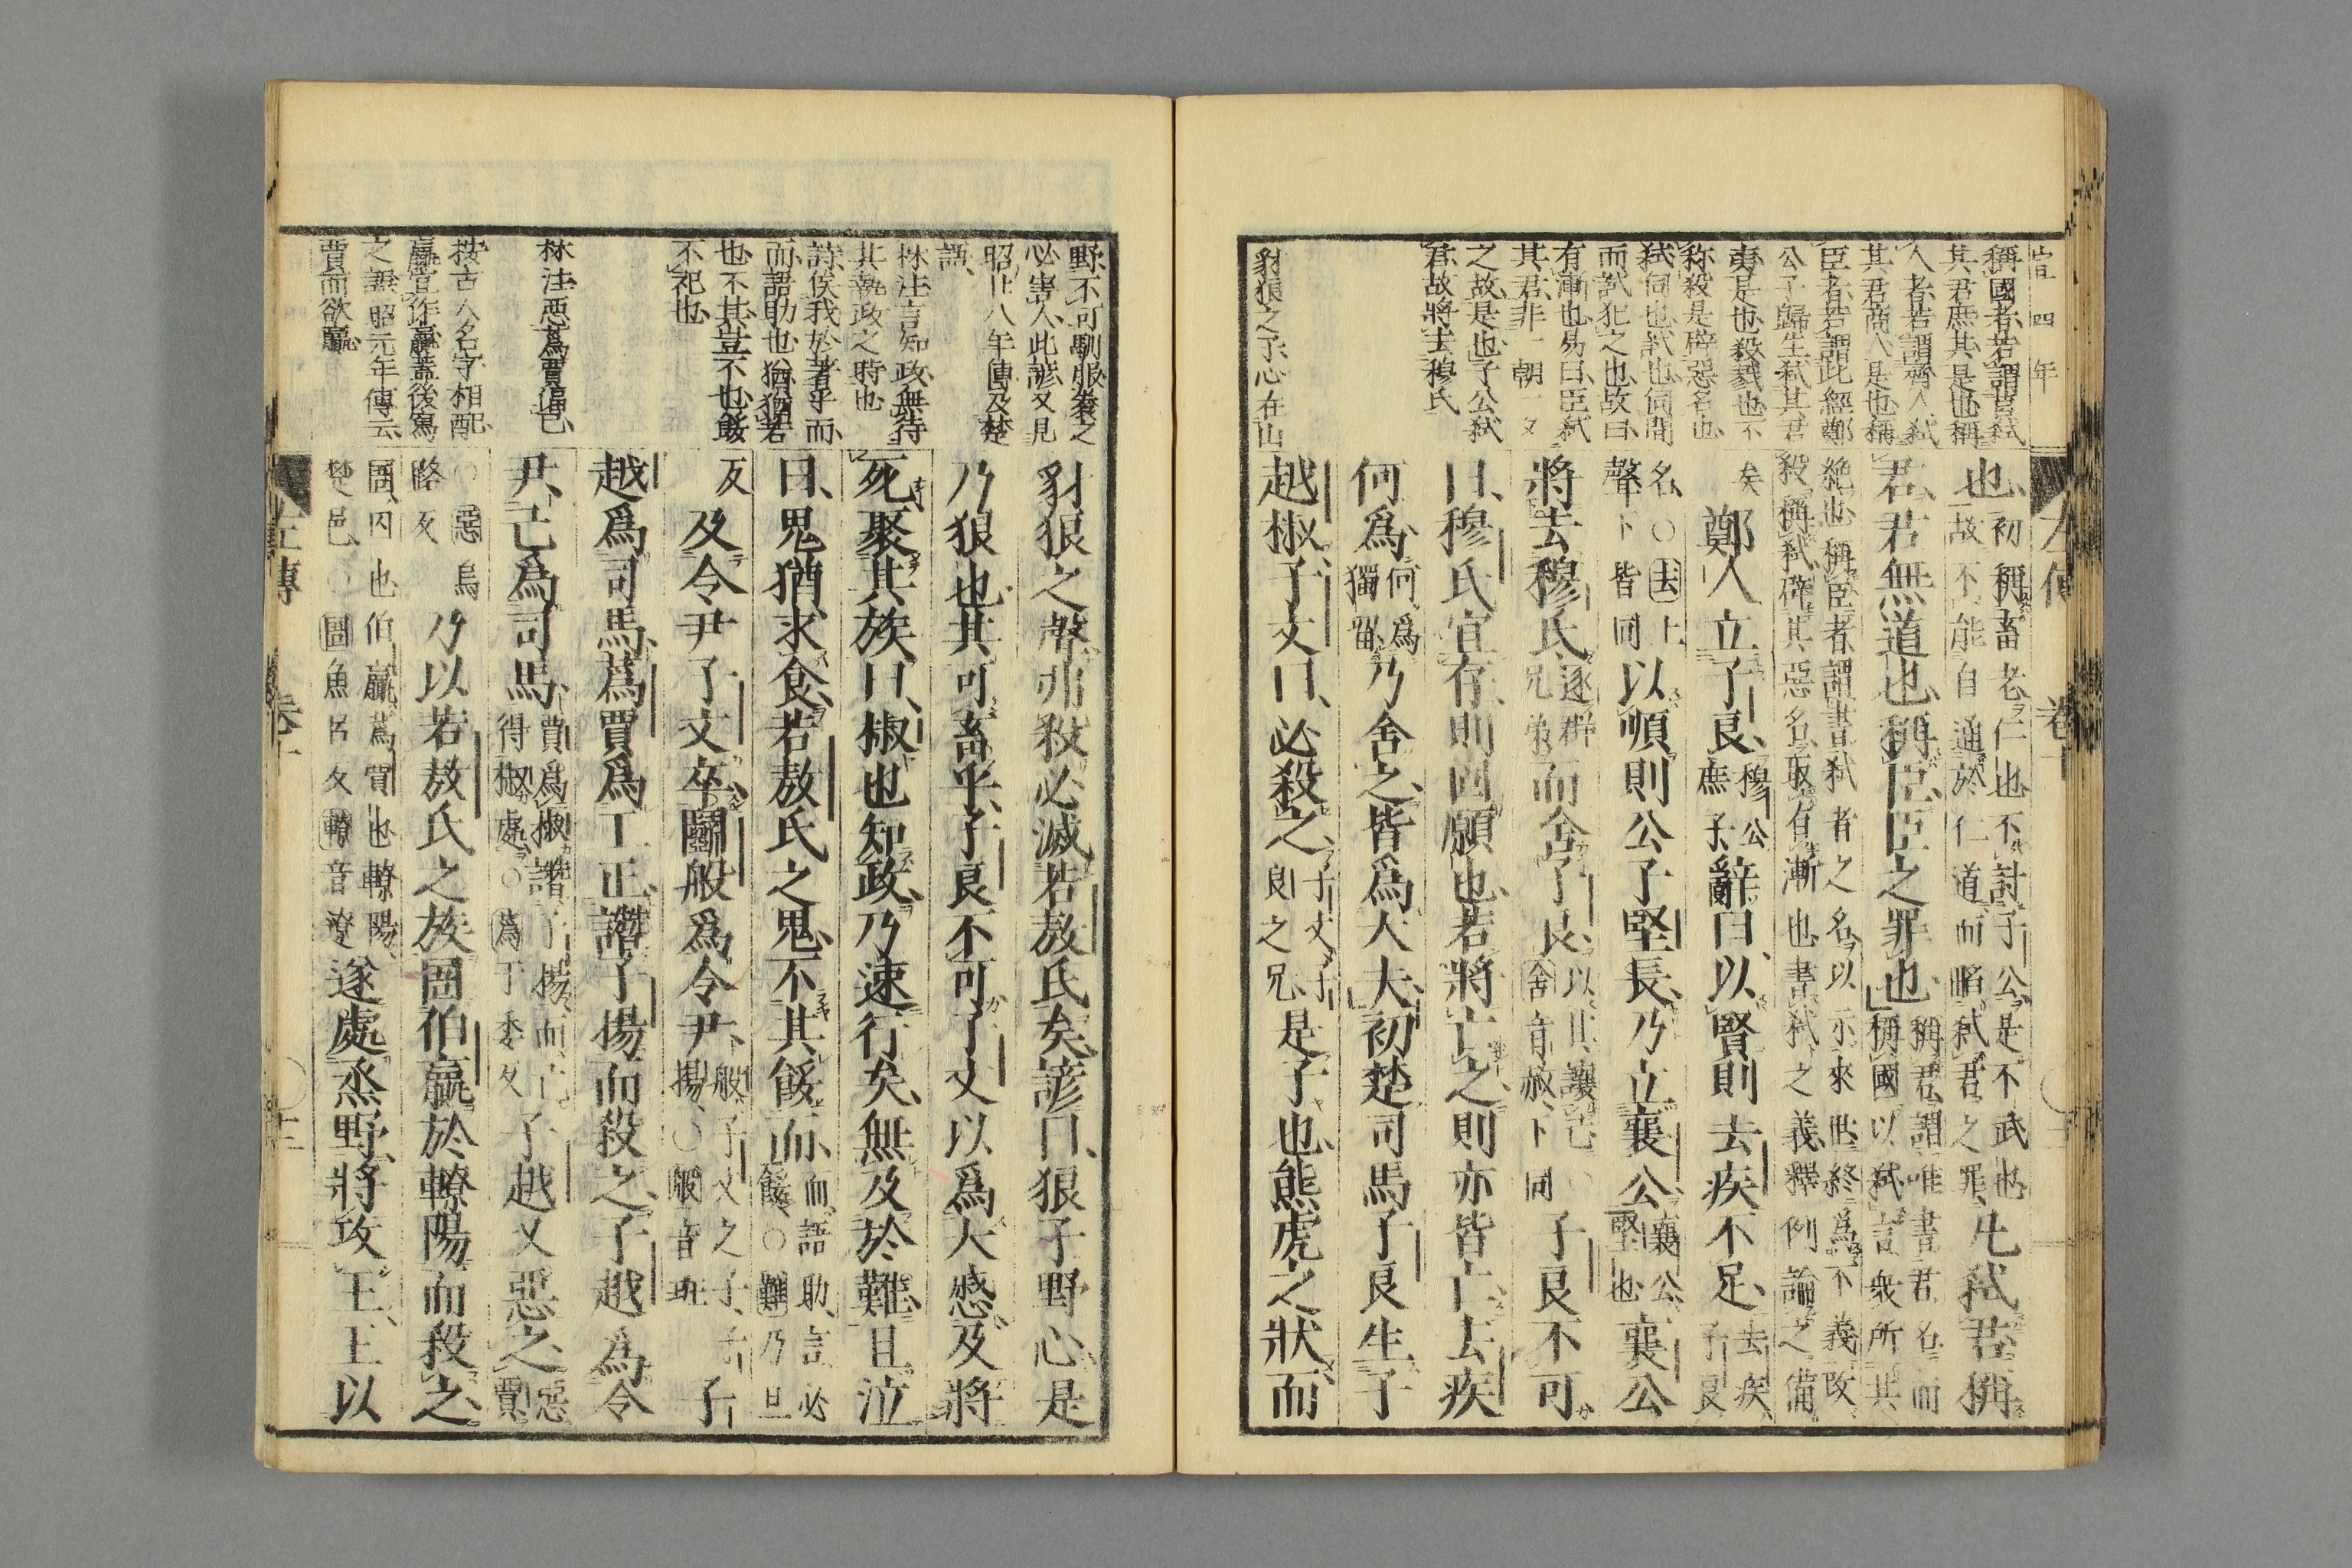 宣四年
稱國者若謂莒弑
其君庶其是也稱
人者若謂齊人弑
其君商人是也稱
臣者若謂此經鄭
公子歸生弑其君
夷是也殺戮也不
称殺是辟惡名也
弑伺也試也伺間
而試犯之也故曰
有漸也易曰臣弑
其君非一朝一夕
之故是也子公弑
君故將去穆氏
豺狼之子心在山
左傳 卷十
也初稱畜老仁也不討子公是不武也
故不能自通於仁道而陷弑君之罪凡弑君稱
君君無道也稱臣臣之罪也稱君謂唯書君名而
稱國以弑言衆所共
絶也稱臣者謂書弑者之名以示來世終爲不義改
殺稱弑辟其惡名取有漸也書弑之義釋例論之備
矣鄭人立子良穆公
庶子辭曰以賢則去疾不足去疾
子良
名○去上
聲下皆同以順則公子堅長乃立襄公襄公
堅也襄公
將去穆氏逐群
兄弟而舍子良以其讓己○
舍音赦下同子良不可
曰穆氏宜存則固願也若將亡之則亦皆亡去疾
何爲何爲
獨留乃舍之皆爲大夫初楚司馬子良生子
越椒子文曰必殺之子文子
良之兄是子也熊虎之狀而
野不可馴服養之
必害人此諺又見
昭廿八年傳及楚
語
林注言知政無待
其執政之時也
詩俟我於著乎而
而語助也猶猶若
也不其豈不也餒
不祀也
林注惡蒍賈偪己
按古人名字相配
嬴宜作贏蓋後寫
之誤昭元年傳云
賈而欲贏
豺狼之聲弗殺必滅若敖氏矣諺曰狼子野心是
乃狼也其可畜乎子良不可子文以爲大慼及將
死聚其族曰椒也知政乃速行矣無及於難且泣
曰鬼猶求食若敖氏之鬼不其餒而而語助言必
餒○難乃旦
反及令尹子文卒鬭般爲令尹般子文之子子
揚○般音班子
越爲司馬蒍賈爲工正譖子揚而殺之子越爲令
尹己爲司馬賈爲椒譖子揚而己
得椒處○蒍于委反子越又惡之惡
賈
○惡烏
路反乃以若敖氏之族圄伯嬴於轑陽而殺之
圄囚也伯嬴蒍賈也轑陽
楚邑○圄魚呂反轑音遼遂處烝野將攻王王以
左傳 卷十